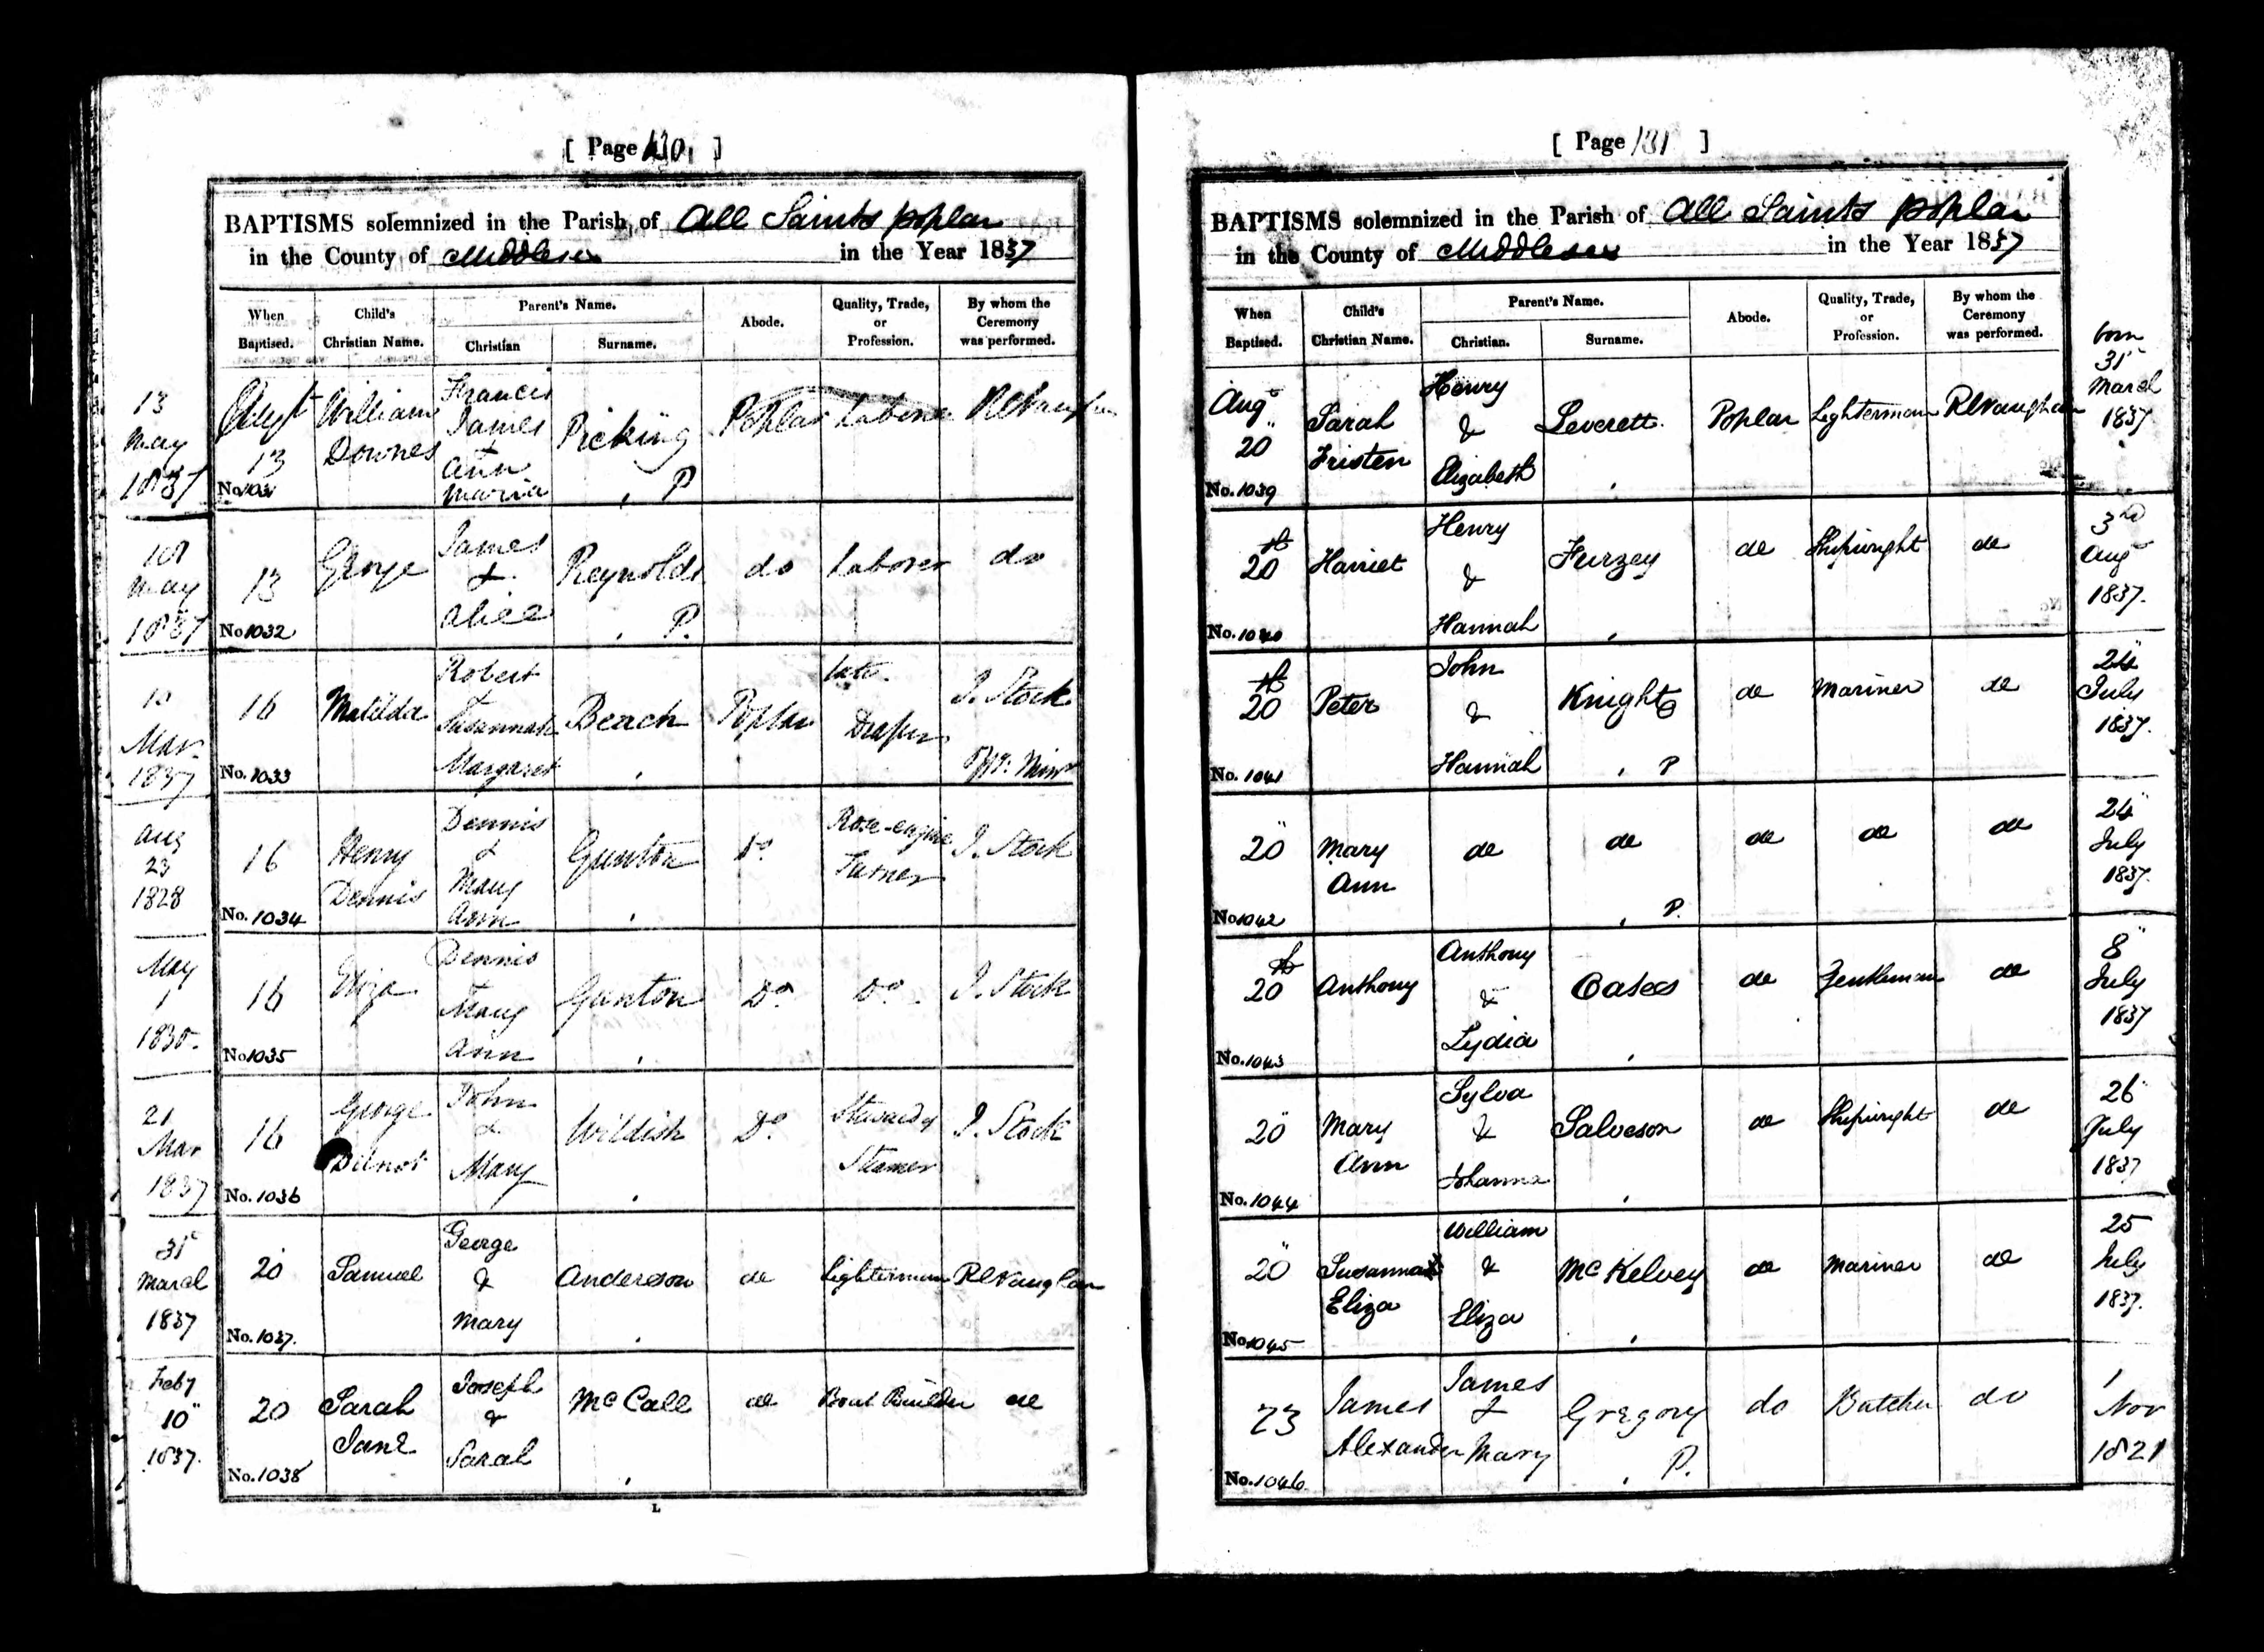 [ Page 130 ]
BAPTISMS solemnized in the Parish of All Saints Poplar
in the County of Middlesex in the Year 1837
When Baptised. Child's Christian Name. Parent's Name. Christian Surname. Abode. Quality, Trade, or Profession. By whom the Ceremony was performed.
13 May 1837 Augst 13 No. 1031 William Downes Francis James & Ann Maria Picking P Poplar Laborer R Vaughan
18 May 1837 13 No. 1032 George James & Alice Reynolds P. do Laborer do
10 Mar 1837 16 No. 1033 Matilda Robert Susannah Margaret Beach Poplar late Draper J. Stock Offg. Minr
Aug 23 1828 16 No. 1034 Henry Dennis Dennis & Mary Ann Gunton Do. Rose-engine Turner J. Stock
May 1 1830. 16 No. 1035 Eliza Dennis Mary Ann Gunton Do. Do. J. Stock
21 Mar 1837 16 No. 1036 George John & Mary Wildish Do. Steward of Steamer J. Stock
31st March 1837 20 No. 1037. Samuel George & Mary Anderson do Lighterman R Vaughan
Feby 10" 1837. 20 No. 1038 Sarah Jane Joseph & Sarah McCall do Boat Builder do
L
[ Page 131 ]
BAPTISMS solemnized in the Parish of All Saints Poplar
in the County of Middlesex in the Year 1837
When Baptised. Child's Christian Name. Parent's Name. Christian. Surname. Abode. Quality, Trade, or Profession. By whom the Ceremony was performed.
Augt 20" No. 1039 Sarah Fristen Henry & Elizabeth Leverett. Poplar Lighterman R Vaughan born 31st March 1837
20th No. 1040 Harriet Henry & Hannah Furzey do Shipwright do 3rd Aug 1837.
20th No. 1041 Peter John & Hannah Knight P do Mariner do 24" July 1837.
20" No. 1042 Mary Ann do do P. do do do 24" July 1837.
20th No. 1043 Anthony Anthony & Lydia Oates do Gentleman do 8" July 1837
20" No. 1044 Mary Ann Sylva & Johanna Salveson do Shipwright do 26" July 1837
20" No. 1045 Susannah Eliza William & Eliza McKelvey do Mariner do 25 July 1837.
23 No. 1046 James Alexander James & Mary Gregory P. do Butcher do 1 Nov 1821